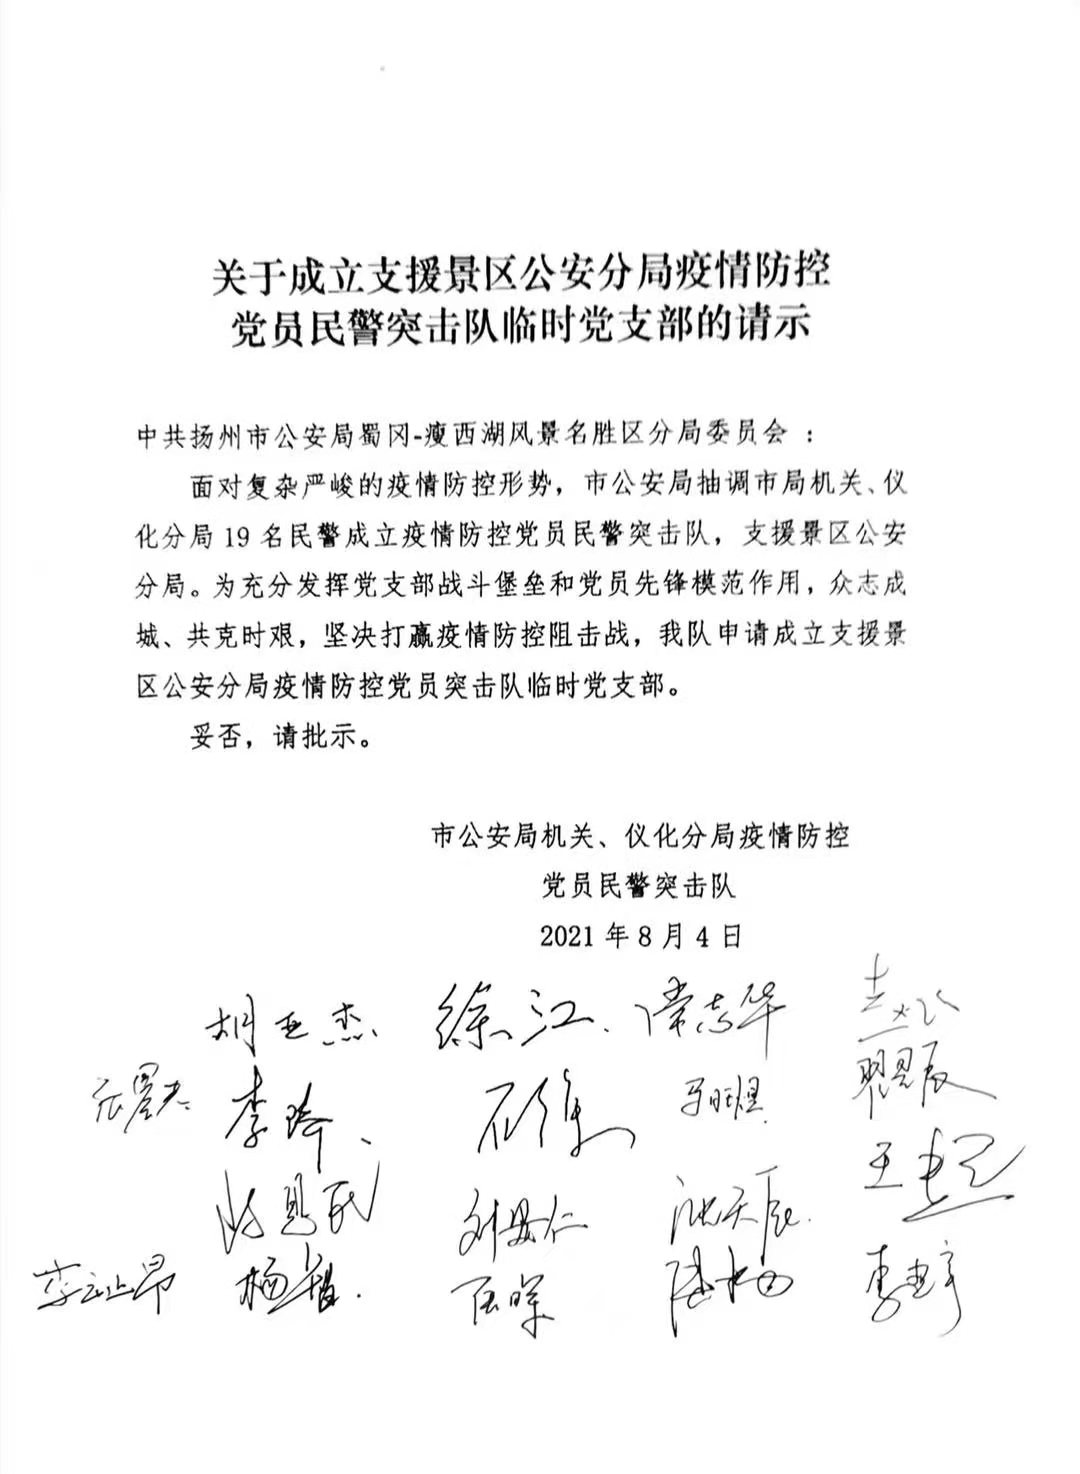 关于成立支援景区公安分局疫情防控
党员民警突击队临时党支部的请示
中共扬州市公安局蜀冈-瘦西湖风景名胜区分局委员会：
面对复杂严峻的疫情防控形势，市公安局抽调市局机关、仪
化分局19名民警成立疫情防控党员民警突击队，支援景区公安
分局。为充分发挥党支部战斗堡垒和党员先锋模范作用，众志成
城、共克时艰，坚决打赢疫情防控阻击战，我队申请成立支援景
区公安分局疫情防控党员突击队临时党支部。
妥否，请批示。
市公安局机关、仪化分局疫情防控
党员民警突击队
2021年8月4日
胡亚杰 徐江 常志华
李玲
沈天辰
杨智